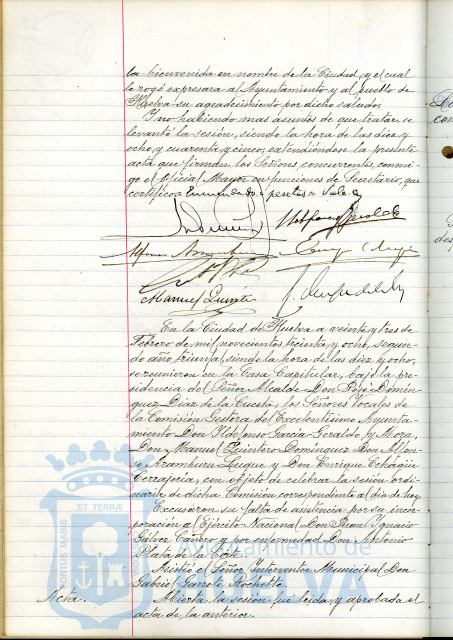 la bienvenida en nombre de la Ciudad, y el cual
le rogó expresara al Ayuntamiento y al pueblo de
Huelva su agradecimiento por dicho saludo.
Y no habiendo mas asuntos de que tratar, se
levantó la sesión, siendo la hora de las diez y
ocho, y cuarenta y cinco, extendiéndose la presente
acta que firman, los Señores concurrentes, conmi-
go el Oficial Mayor en funciones de Secretario, que
certifico = Enmendado = pesetas = Vale =
Manuel Quintero
En la Ciudad de Huelva a veinte y tres de
Febrero de mil novecientos treinta y ocho, segun-
do año triunfal, siendo la hora de las diez y ocho,
se reunieron en la Casa Capitular, bajo la pre-
sidencia del Señor Alcalde Don José Domín-
guez Diaz de la Cuesta, los Señores Vocales de
la Comisión Gestora del Excelentísimo Ayunta-
miento Don Ildefonso García Geraldo y Mora,
Don Manuel Quintero Dominguez Don Alfon-
so Aramburu Luque y Don Enrique Echagüe
Cerrajería, con objeto de celebrar la sesión ordi-
naria de dicha Comisión correspondiente al dia de hoy.
Excusaron su falta de asistencia por su incor-
poración al Ejército Nacional Don Ignacio
y por enfermedad Don Antonio
Plata de la Corte.
Asistió el Señor Interventor Municipal Don
Gabriel Garrote
Acta. Abierta la sesión fué leida y aprobada el
acta de la anterior.
PORTUS MARIS
ET TERRÆ
Ayuntamiento de
HUELVA